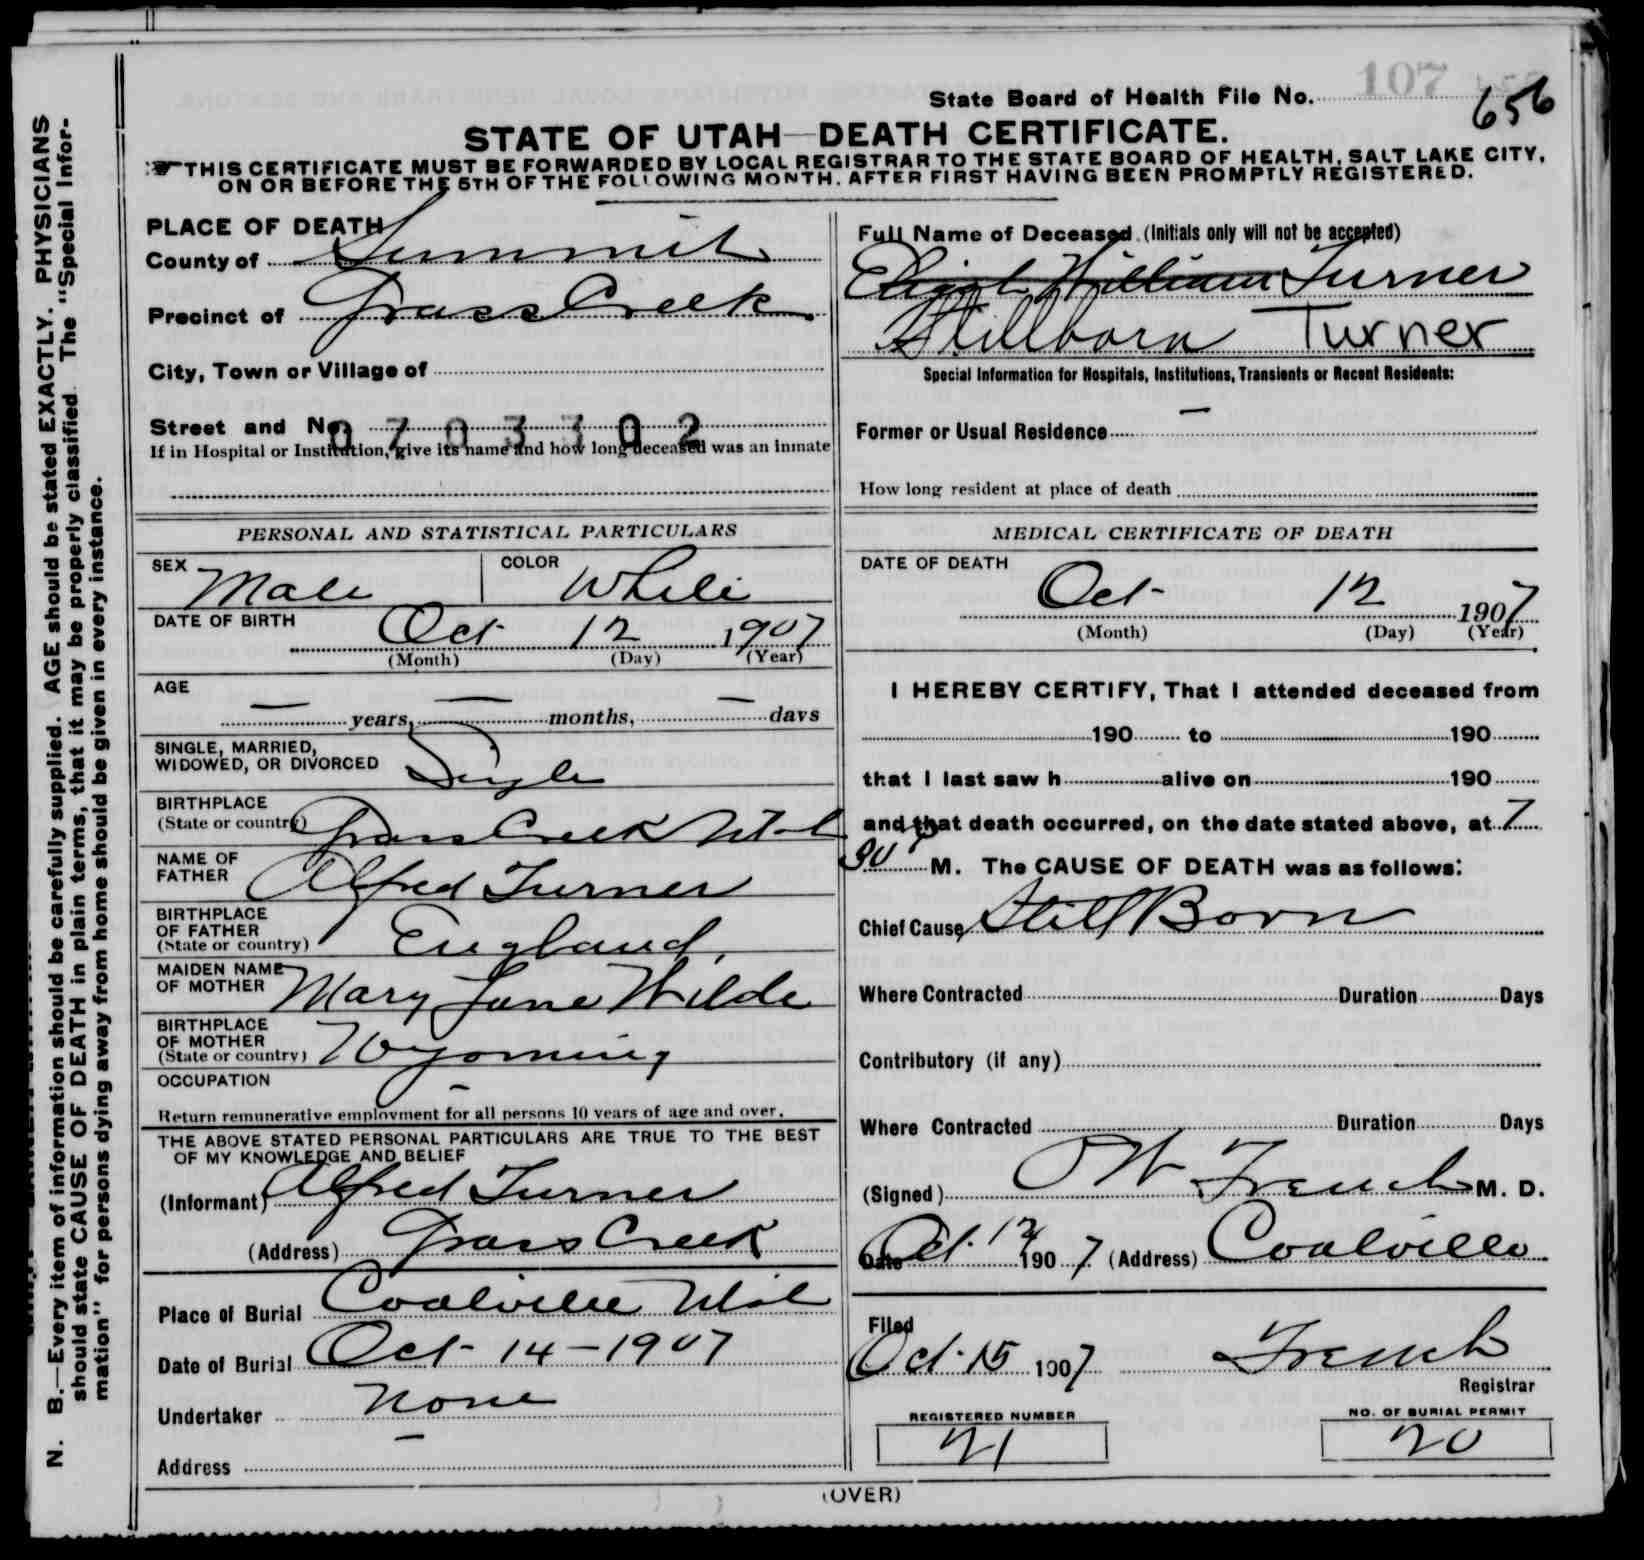 107
State Board of Health File No. 656
STATE OF UTAH—DEATH CERTIFICATE.
THIS CERTIFICATE MUST BE FORWARDED BY LOCAL REGISTRAR TO THE STATE BOARD OF HEALTH, SALT LAKE CITY,
ON OR BEFORE THE 5TH OF THE FOLLOWING MONTH. AFTER FIRST HAVING BEEN PROMPTLY REGISTERED.
N. B.—Every item of information should be carefully supplied. AGE should be stated EXACTLY. PHYSICIANS
should state CAUSE OF DEATH in plain terms, that it may be properly classified. The "Special Infor-
mation" for persons dying away from home should be given in every instance.
PLACE OF DEATH
County of Summit
Precinct of Grass Creek
City, Town or Village of
Street and No.
0703302
If in Hospital or Institution, give its name and how long deceased was an inmate
PERSONAL AND STATISTICAL PARTICULARS
SEX Male COLOR White
DATE OF BIRTH Oct 12 1907
(Month) (Day) (Year)
AGE
— years, — months, — days
SINGLE, MARRIED,
WIDOWED, OR DIVORCED Single
BIRTHPLACE
(State or country) Grass Creek Utah
NAME OF
FATHER Alfred Turner
BIRTHPLACE
OF FATHER
(State or country) England
MAIDEN NAME
OF MOTHER Mary Jane Wilde
BIRTHPLACE
OF MOTHER
(State or country) Wyoming
OCCUPATION —
Return remunerative employment for all persons 10 years of age and over.
THE ABOVE STATED PERSONAL PARTICULARS ARE TRUE TO THE BEST
OF MY KNOWLEDGE AND BELIEF
(Informant) Alfred Turner
(Address) Grass Creek
Place of Burial Coalville Utah
Date of Burial Oct - 14 - 1907
Undertaker None
Address —
Full Name of Deceased (Initials only will not be accepted)
William Turner
Stillborn Turner
Special Information for Hospitals, Institutions, Transients or Recent Residents:
Former or Usual Residence —
How long resident at place of death
MEDICAL CERTIFICATE OF DEATH
DATE OF DEATH
Oct 12 1907
(Month) (Day) (Year)
I HEREBY CERTIFY, That I attended deceased from
190 to 190
that I last saw h alive on 190
and that death occurred, on the date stated above, at 7
30 P M. The CAUSE OF DEATH was as follows:
Chief Cause Still Born
Where Contracted Duration Days
Contributory (if any)
Where Contracted Duration Days
(Signed) French M. D.
Date Oct. 1907 (Address) Coalville
Filed
Oct. 15 1907 French
Registrar
REGISTERED NUMBER
21
NO. OF BURIAL PERMIT
20
(OVER)